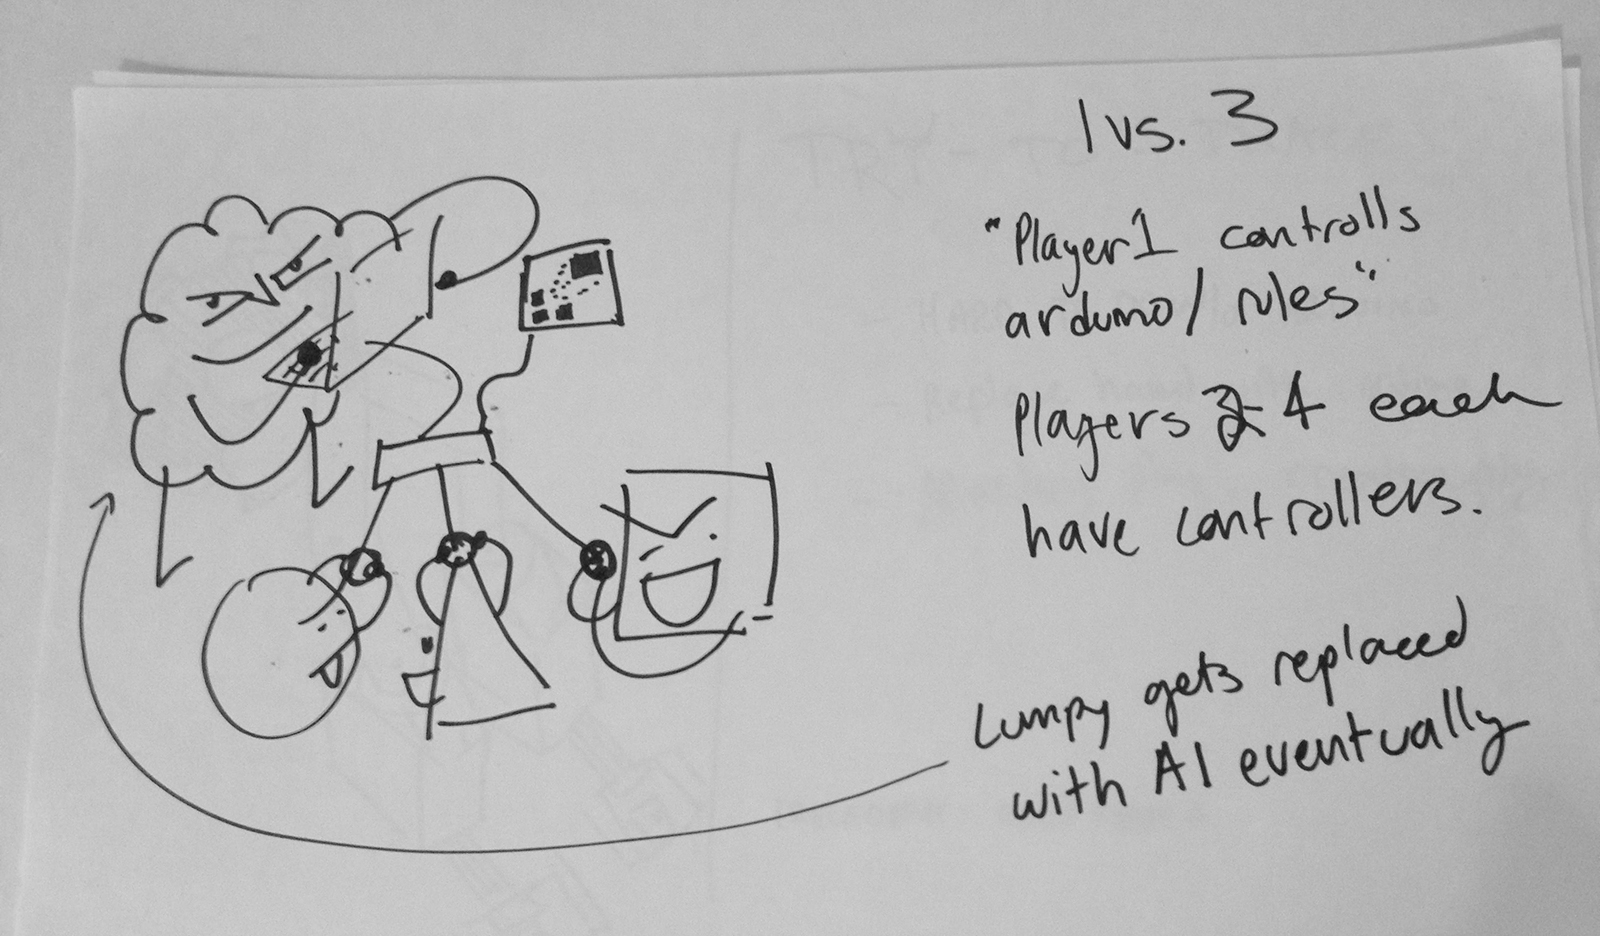 1 vs. 3
"Player 1 controlls
arduino/rules"
Players 2-4 each
have controllers.
Lumpy gets replaced
with AI eventually